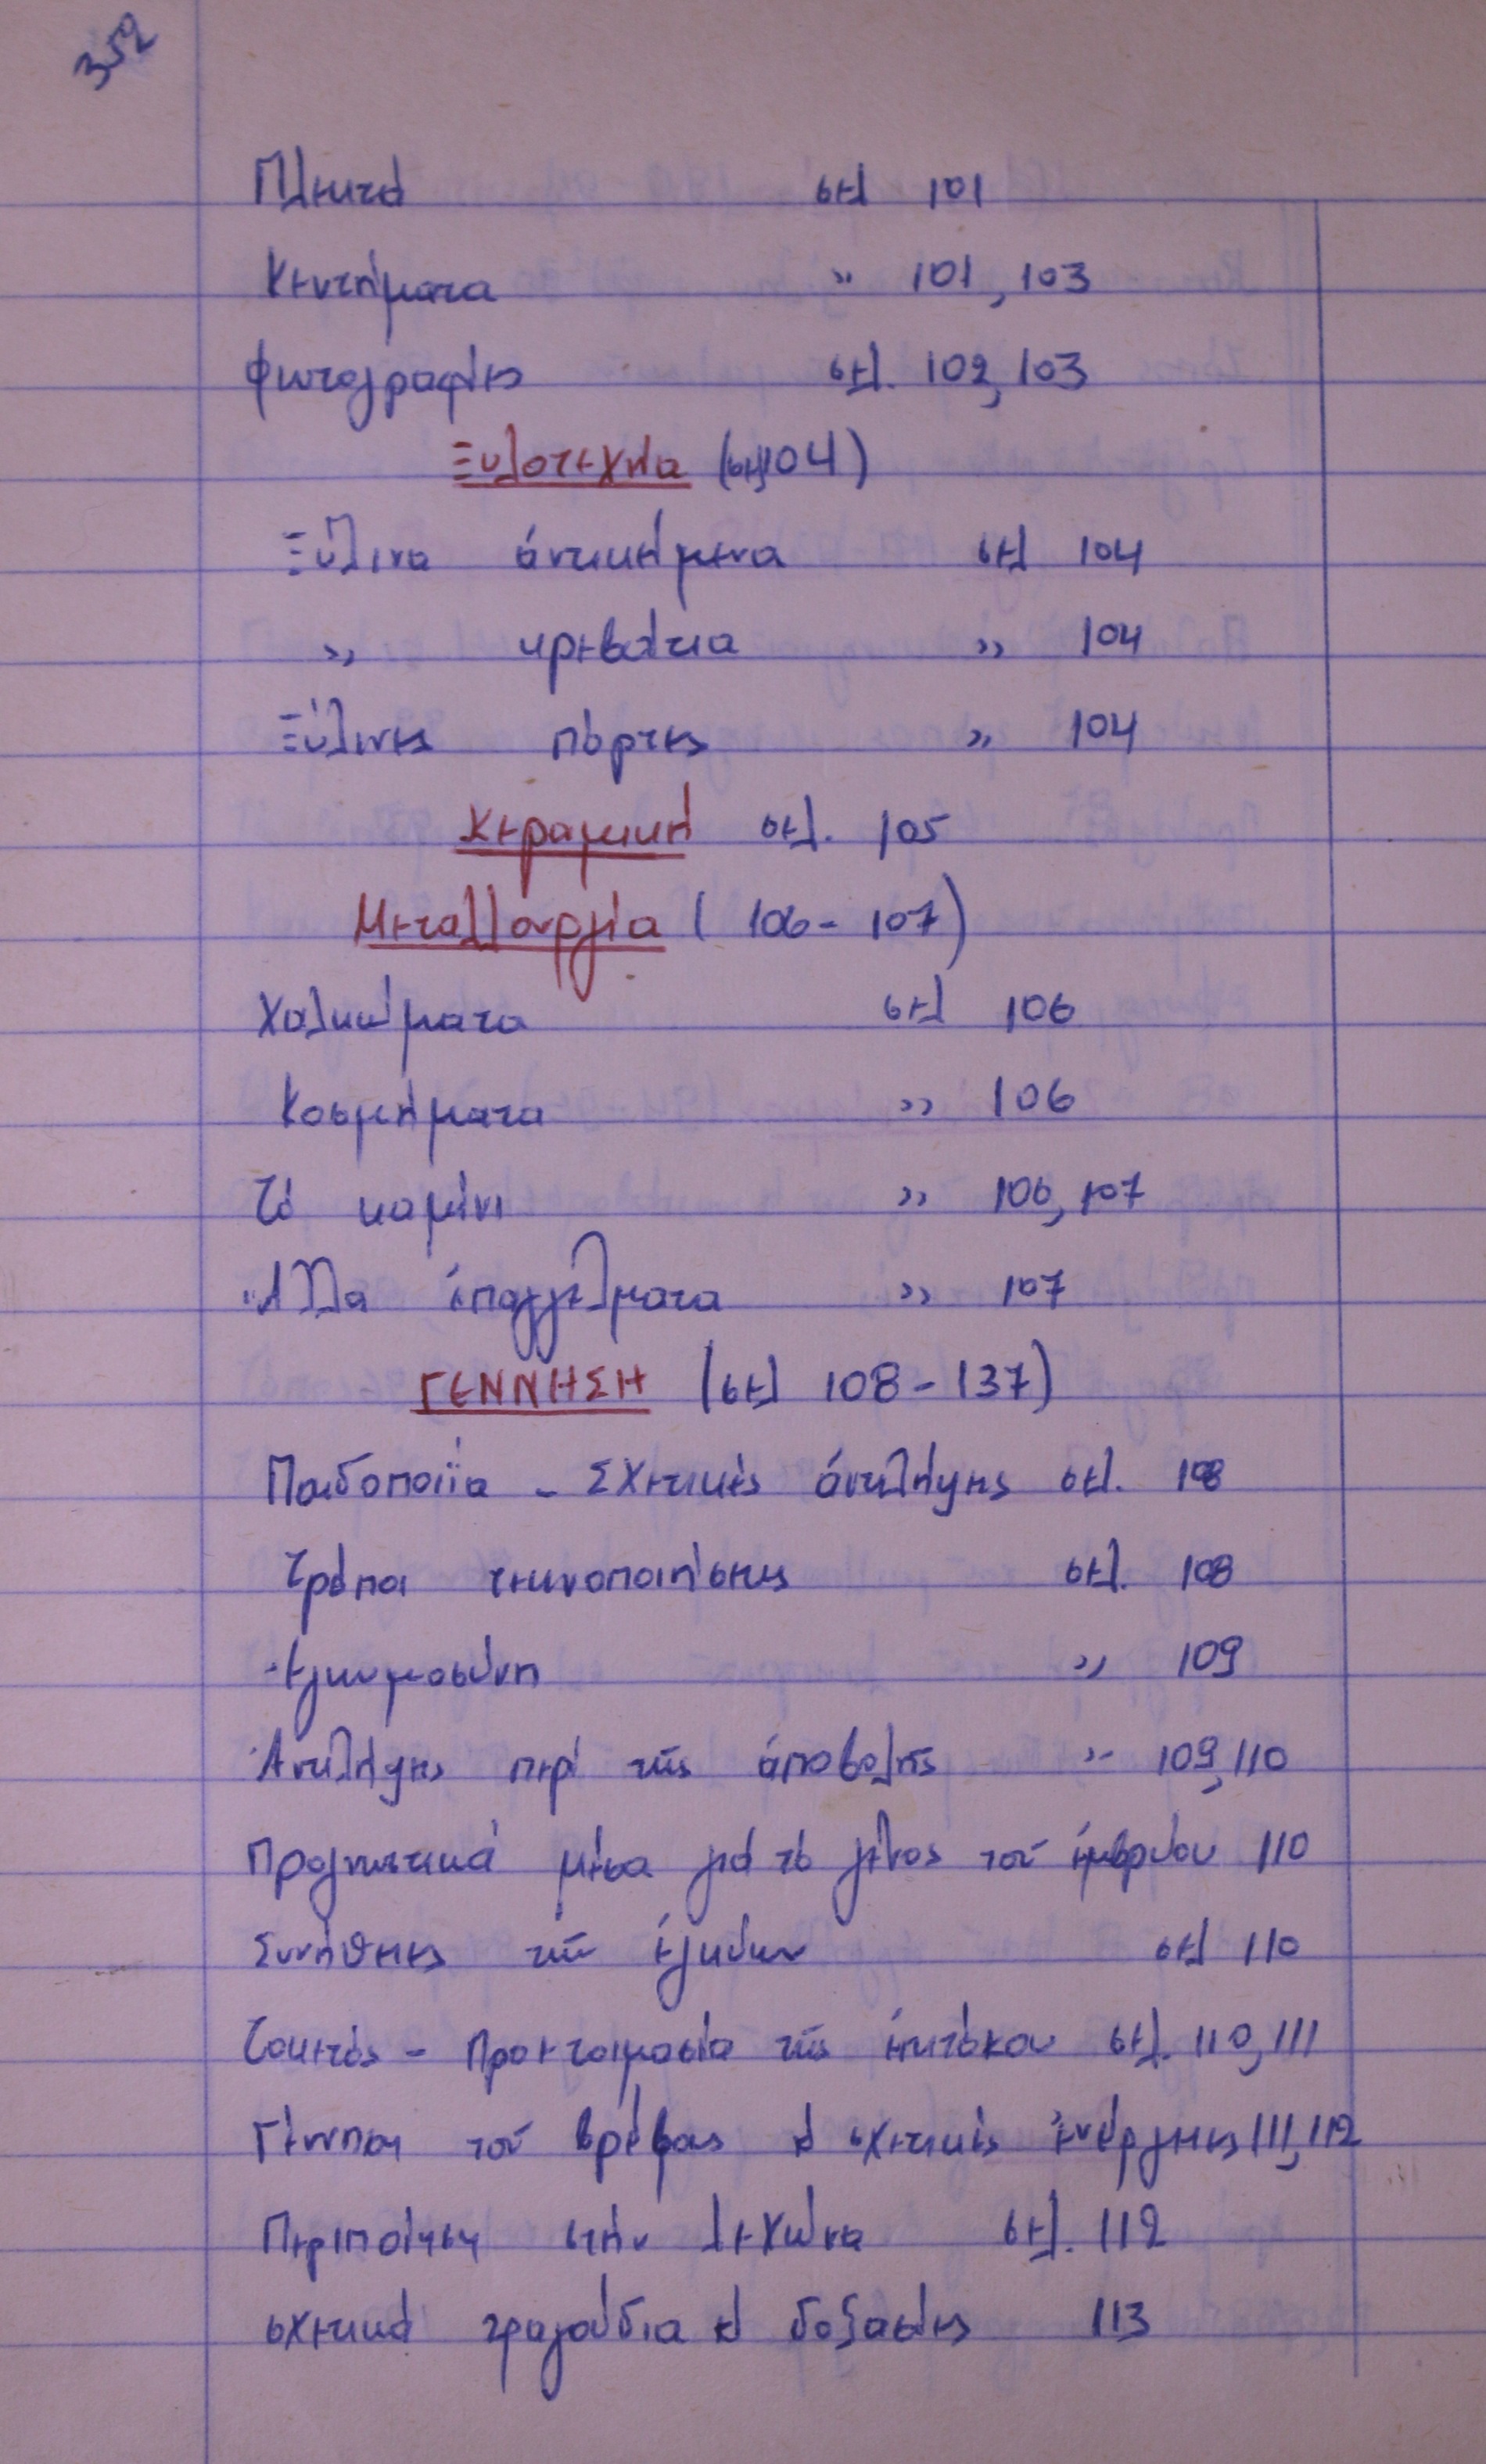 352
Πλεκτά σελ 101
Κεντήματα " 101, 103
Φωτογραφίες σελ. 102, 103
Ξυλοτεχνία (σελ 104)
Ξύλινα ἀντικείμενα σελ 104
" κρεβάτια " 104
Ξύλινες πόρτες " 104
Κεραμική σελ. 105
Μεταλλουργία (106-107)
Χαλκώματα σελ 106
Κοσμήματα " 106
Τό καμίνι " 106, 107
Ἄλλα ἐπαγγέλματα " 107
ΓΕΝΝΗΣΗ (σελ 108-137)
Παιδοποιΐα - Σχετικές ἀντιλήψεις σελ. 108
Τρόποι τεκνοποιήσεως σελ. 108
Ἐγκυμοσύνη " 109
Ἀντιλήψεις περί τῆς ἀποβολῆς " 109, 110
Προγνωστικά μέσα γιά τό γένος τοῦ ἐμβρύου 110
Συνήθειες τῶν ἐγκύων σελ 110
Τοκετός - Προετοιμασία τῆς ἐπιτόκου σελ. 110, 111
Γέννηση τοῦ βρέφους & σχετικές ἐνέργειες 111, 112
Περιποίηση στήν λεχώνα σελ. 112
σχετικά τραγούδια & δοξασίες 113